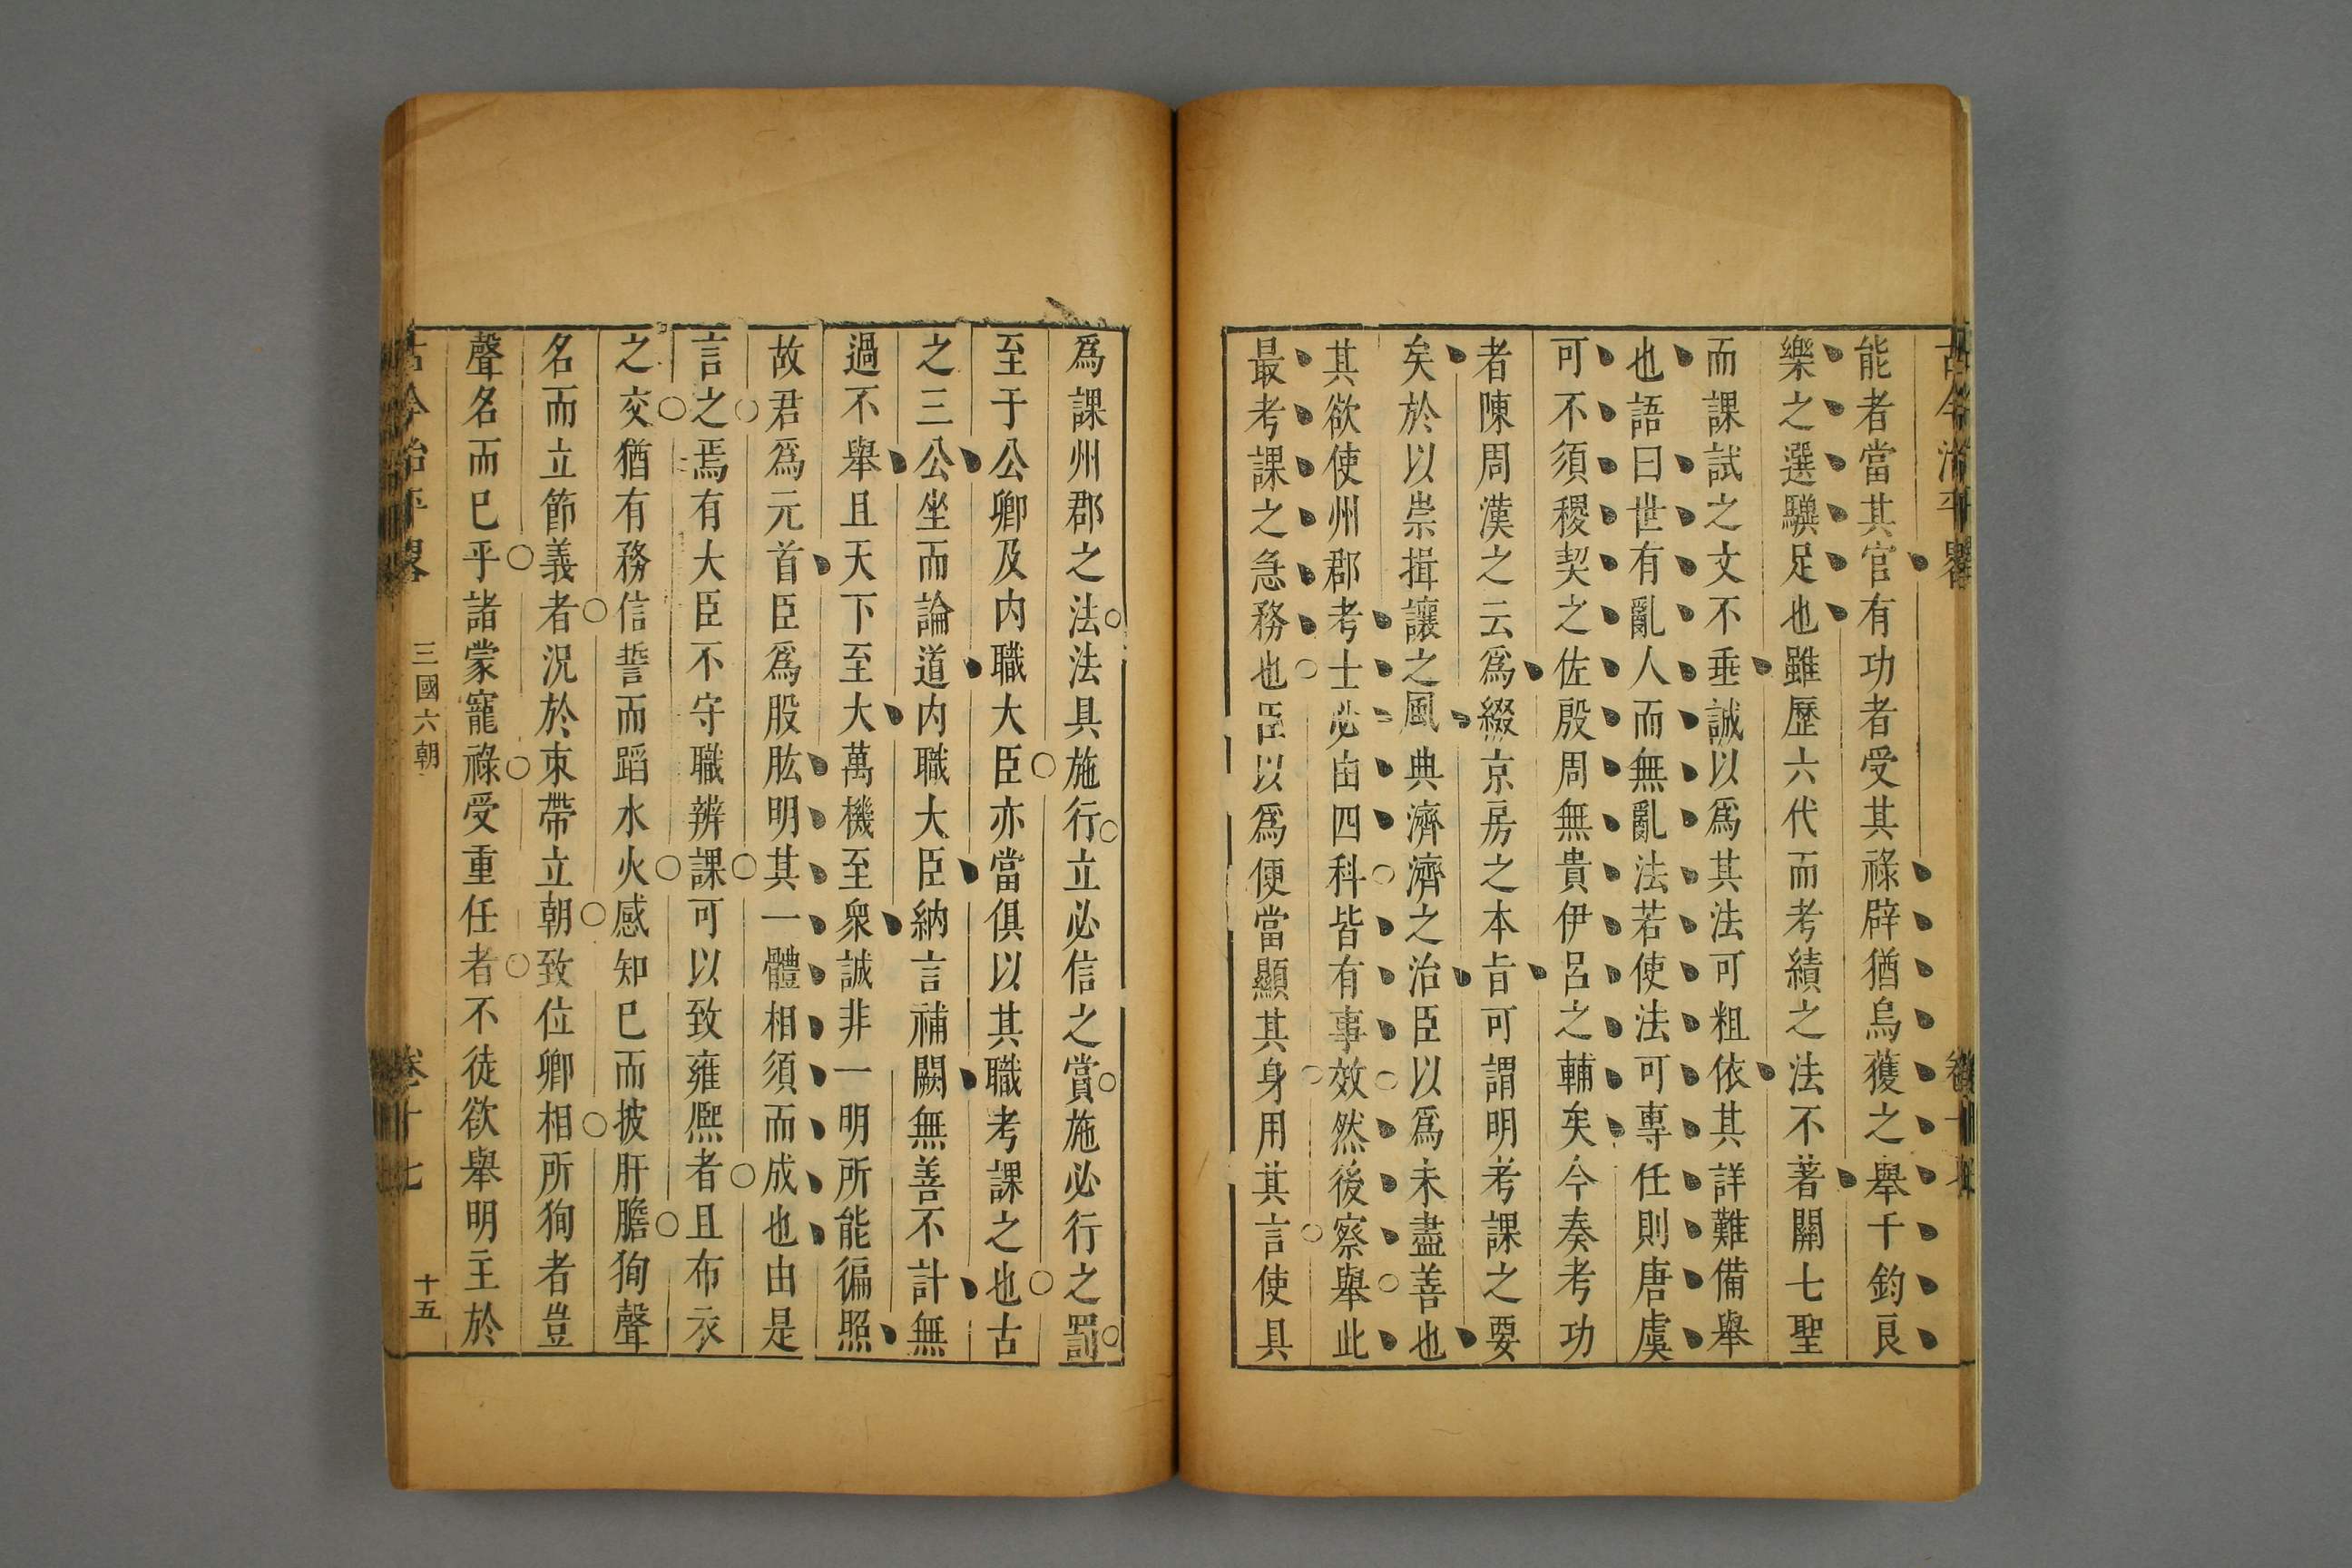 古今治平畧
卷十七
能者當其官有功者受其祿辟猶烏獲之舉千鈞良
樂之選驥足也雖歷六代而考績之法不著關七聖
而課試之文不垂誠以爲其法可粗依其詳難備舉
也語曰世有亂人而無亂法若使法可專任則唐虞
可不須稷契之佐殷周無貴伊呂之輔矣今奏考功
者陳周漢之云爲綴京房之本旨可謂明考課之要
矣於以崇揖讓之風典濟濟之治臣以爲未盡善也
其欲使州郡考士必由四科皆有事效然後察舉此
最考課之急務也臣以爲便當顯其身用其言使具
爲課州郡之法法具施行立必信之賞施必行之罰
至于公卿及内職大臣亦當俱以其職考課之也古
之三公坐而論道内職大臣納言補闕無善不計無
過不舉且天下至大萬機至衆誠非一明所能徧照
故君爲元首臣爲股肱明其一體相須而成也由是
言之焉有大臣不守職辨課可以致雍熈者且布衣
之交猶有務信誓而蹈水火感知巳而披肝膽狥聲
名而立節義者況於束帶立朝致位卿相所狥者豈
聲名而巳乎諸蒙寵祿受重任者不徒欲舉明主於
古今治平畧
三國六朝
卷十七
十五